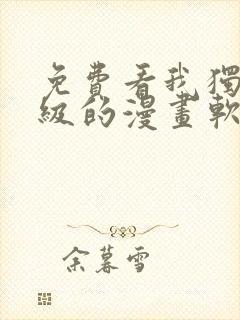 免費看我獨
級的漫畫軟
余暮雪